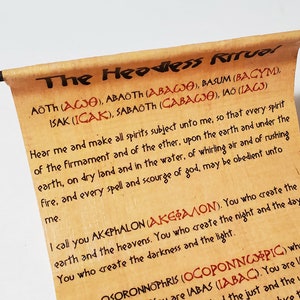 The Headless Ritual
AOTH (ΑΩΘ), ABAOTH (ΑΒΑΩΘ), BASUM (ΒΑϹΥΜ),
ISAK (ΙϹΑΚ), SABAOTH (ϹΑΒΑΩΘ), IAO (ΙΑΩ)
Hear me and make all spirits subject unto me, so that every spirit
of the firmament and of the ether, upon the earth and under the
earth, on dry land and in the water, of whirling air and of rushing
fire, and every spell and scourge of god, may be obedient unto
me.
I call you AKEPHALON (ΑΚΕΦΑΛΟΝ). You create the
earth and the heavens. You who create the night and the day
You who create the darkness and the light.
OSORONNOPHRIS (ΟϹΟΡΟΝΝΩΦΡΙϹ)
You are IABAS (ΙΑΒΑϹ). You are
the just and the